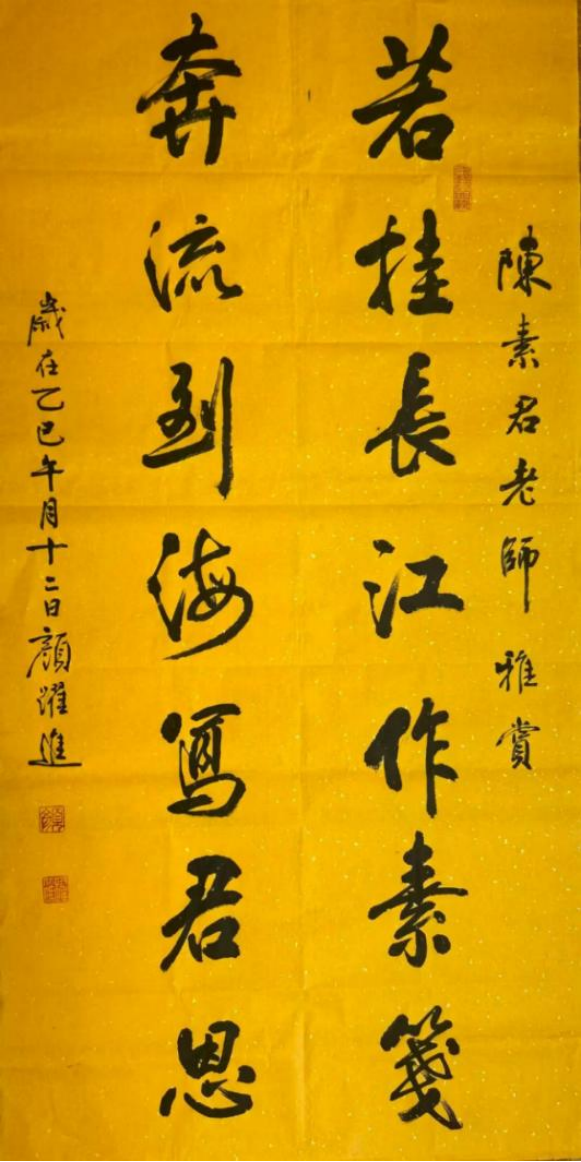 陳素君老師 雅賞
若挂長江作素箋
奔流到海寫君恩
歲在乙巳午月十二日顏躍進